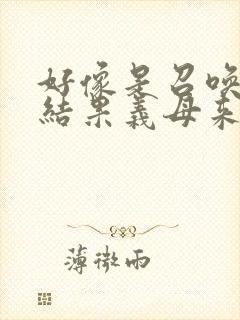 好像是召唤
結果義母来
薄微雨